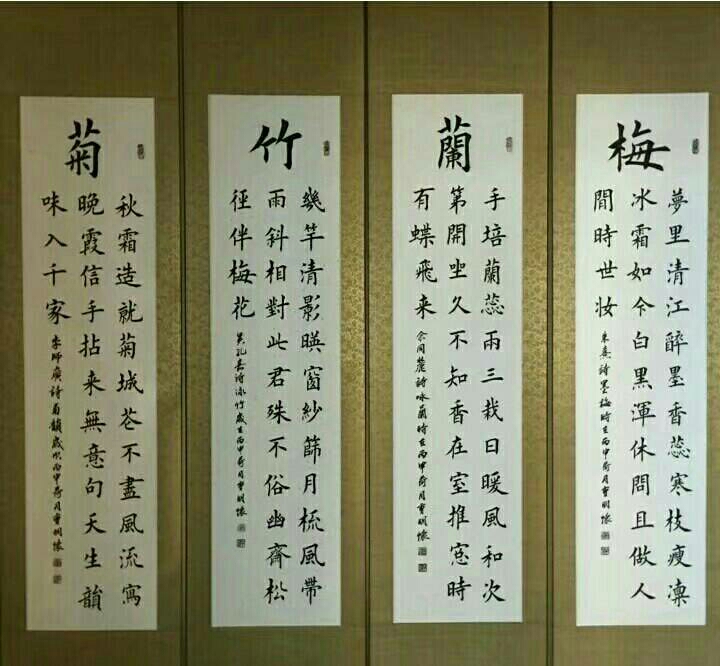 梅
夢里清江醉墨香蕊寒枝瘦凛
冰霜如今白黑渾休問且做人
間時世妆
朱熹詩墨梅時在丙申荷月曹明懷
蘭
手培蘭蕊兩三栽日暖風和次
第開坐久不知香在室推窓時
有蝶飛来
余同麓詩咏蘭時在丙申荷月曹明懷
竹
幾竿清影暎窗紗篩月梳風帶
雨斜相對此君殊不俗幽齋松
徑伴梅花
吴孔嘉詩咏竹歲在丙申荷月曹明懷
菊
秋霜造就菊城花不盡風流寫
晚霞信手拈来無意句天生韻
味入千家
李師廣詩菊韻歲次丙申荷月曹明懷